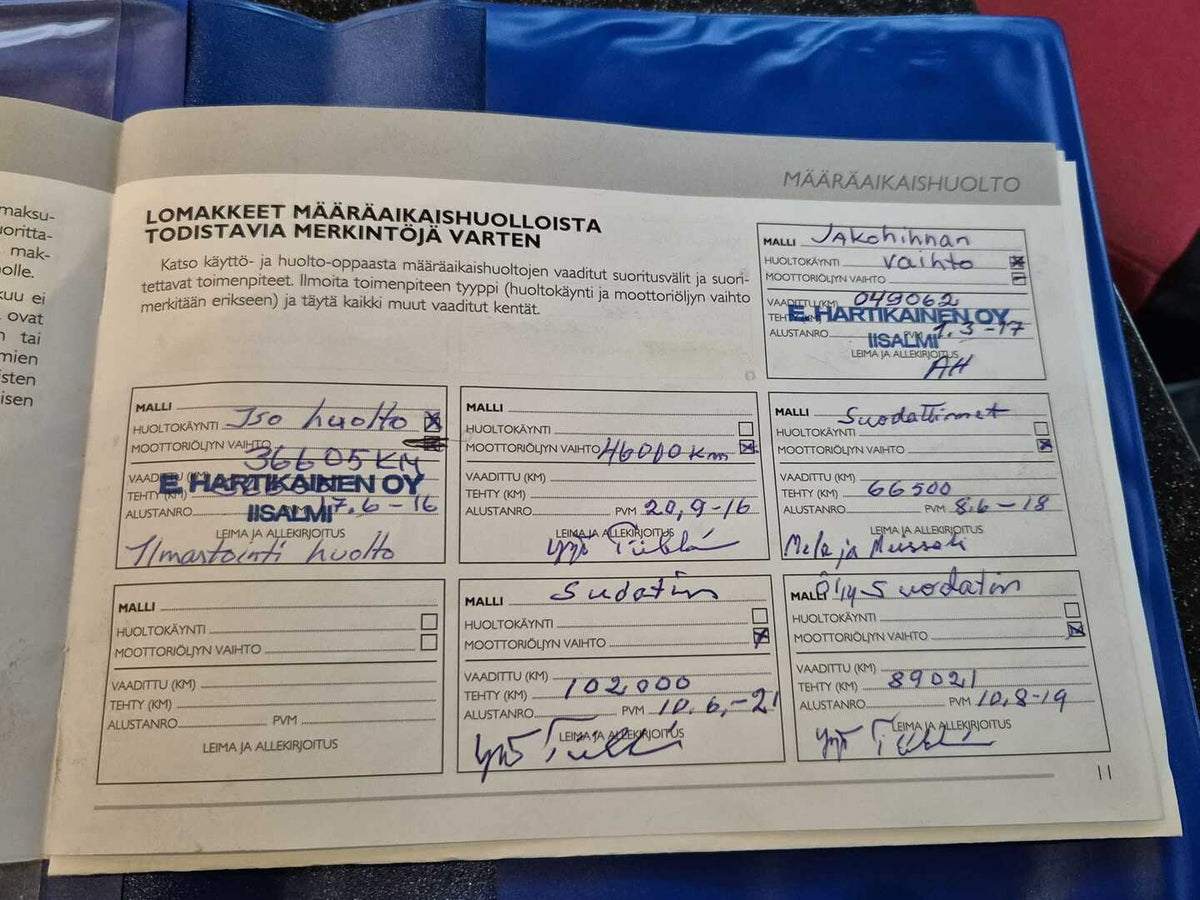 maksu-
uoritta-
mak-
nolle.
kuu ei
ovat
tai
mien
isten
isen
MÄÄRÄAIKAISHUOLTO
LOMAKKEET MÄÄRÄAIKAISHUOLLOISTA
TODISTAVIA MERKINTÖJÄ VARTEN
Katso käyttö- ja huolto-oppaasta määräaikaishuoltojen vaaditut suoritusvälit ja suori-
tettavat toimenpiteet. Ilmoita toimenpiteen tyyppi (huoltokäynti ja moottoriöljyn vaihto
merkitään erikseen) ja täytä kaikki muut vaaditut kentät.
MALLI Jakohihnan
HUOLTOKÄYNTI vaihto
MOOTTORIÖLJYN VAIHTO
VAADITTU (KM) 049062
E. HARTIKAINEN OY
TEHTY (KM)
IISALMI
ALUSTANRO PVM 1.3-17
LEIMA JA ALLEKIRJOITUS
AH
MALLI
HUOLTOKÄYNTI Iso huolto
MOOTTORIÖLJYN VAIHTO
36605 KM
VAADITTU (KM)
E. HARTIKAINEN OY
TEHTY (KM)
IISALMI
ALUSTANRO 17.6-16
LEIMA JA ALLEKIRJOITUS
Ilmastointi huolto
MALLI
HUOLTOKÄYNTI
MOOTTORIÖLJYN VAIHTO 46000 km
VAADITTU (KM)
TEHTY (KM)
ALUSTANRO PVM 20,9-16
LEIMA JA ALLEKIRJOITUS
MALLI Suodattimet
HUOLTOKÄYNTI
MOOTTORIÖLJYN VAIHTO
VAADITTU (KM)
TEHTY (KM) 66500
ALUSTANRO PVM 8.6-18
LEIMA JA ALLEKIRJOITUS
MALLI
HUOLTOKÄYNTI
MOOTTORIÖLJYN VAIHTO
VAADITTU (KM)
TEHTY (KM)
ALUSTANRO PVM
LEIMA JA ALLEKIRJOITUS
MALLI Sudatin
HUOLTOKÄYNTI
MOOTTORIÖLJYN VAIHTO
VAADITTU (KM)
TEHTY (KM) 102,000
ALUSTANRO PVM 10.6,-21
LEIMA JA ALLEKIRJOITUS
MALLI Suodatin
HUOLTOKÄYNTI
MOOTTORIÖLJYN VAIHTO
VAADITTU (KM)
TEHTY (KM) 89021
ALUSTANRO PVM 10,8-19
LEIMA JA ALLEKIRJOITUS
11